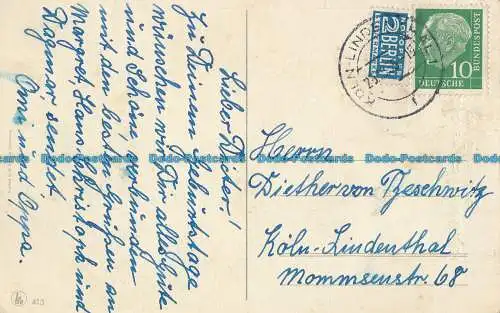 Lieber Dieter!
Zu Deinem Geburtstage
wünschen wir Dir alles Gute
und Schöne, verbunden
mit den besten Grüßen an
Margret, Hans-Christoph und
Dagmar sendet
Omi und Opa.
NOTOPFER
2 BERLIN
STEUERMARKE
KÖLN-LINDENTHAL
DEUTSCHE BUNDESPOST
10
Herrn
Diether von Tzeschwitz
Köln-Lindenthal
Mommsenstr. 68
Dodo-Postcards Dodo-Postcards Dodo-Postcards Dodo-Postcards Dodo-Postcards
413